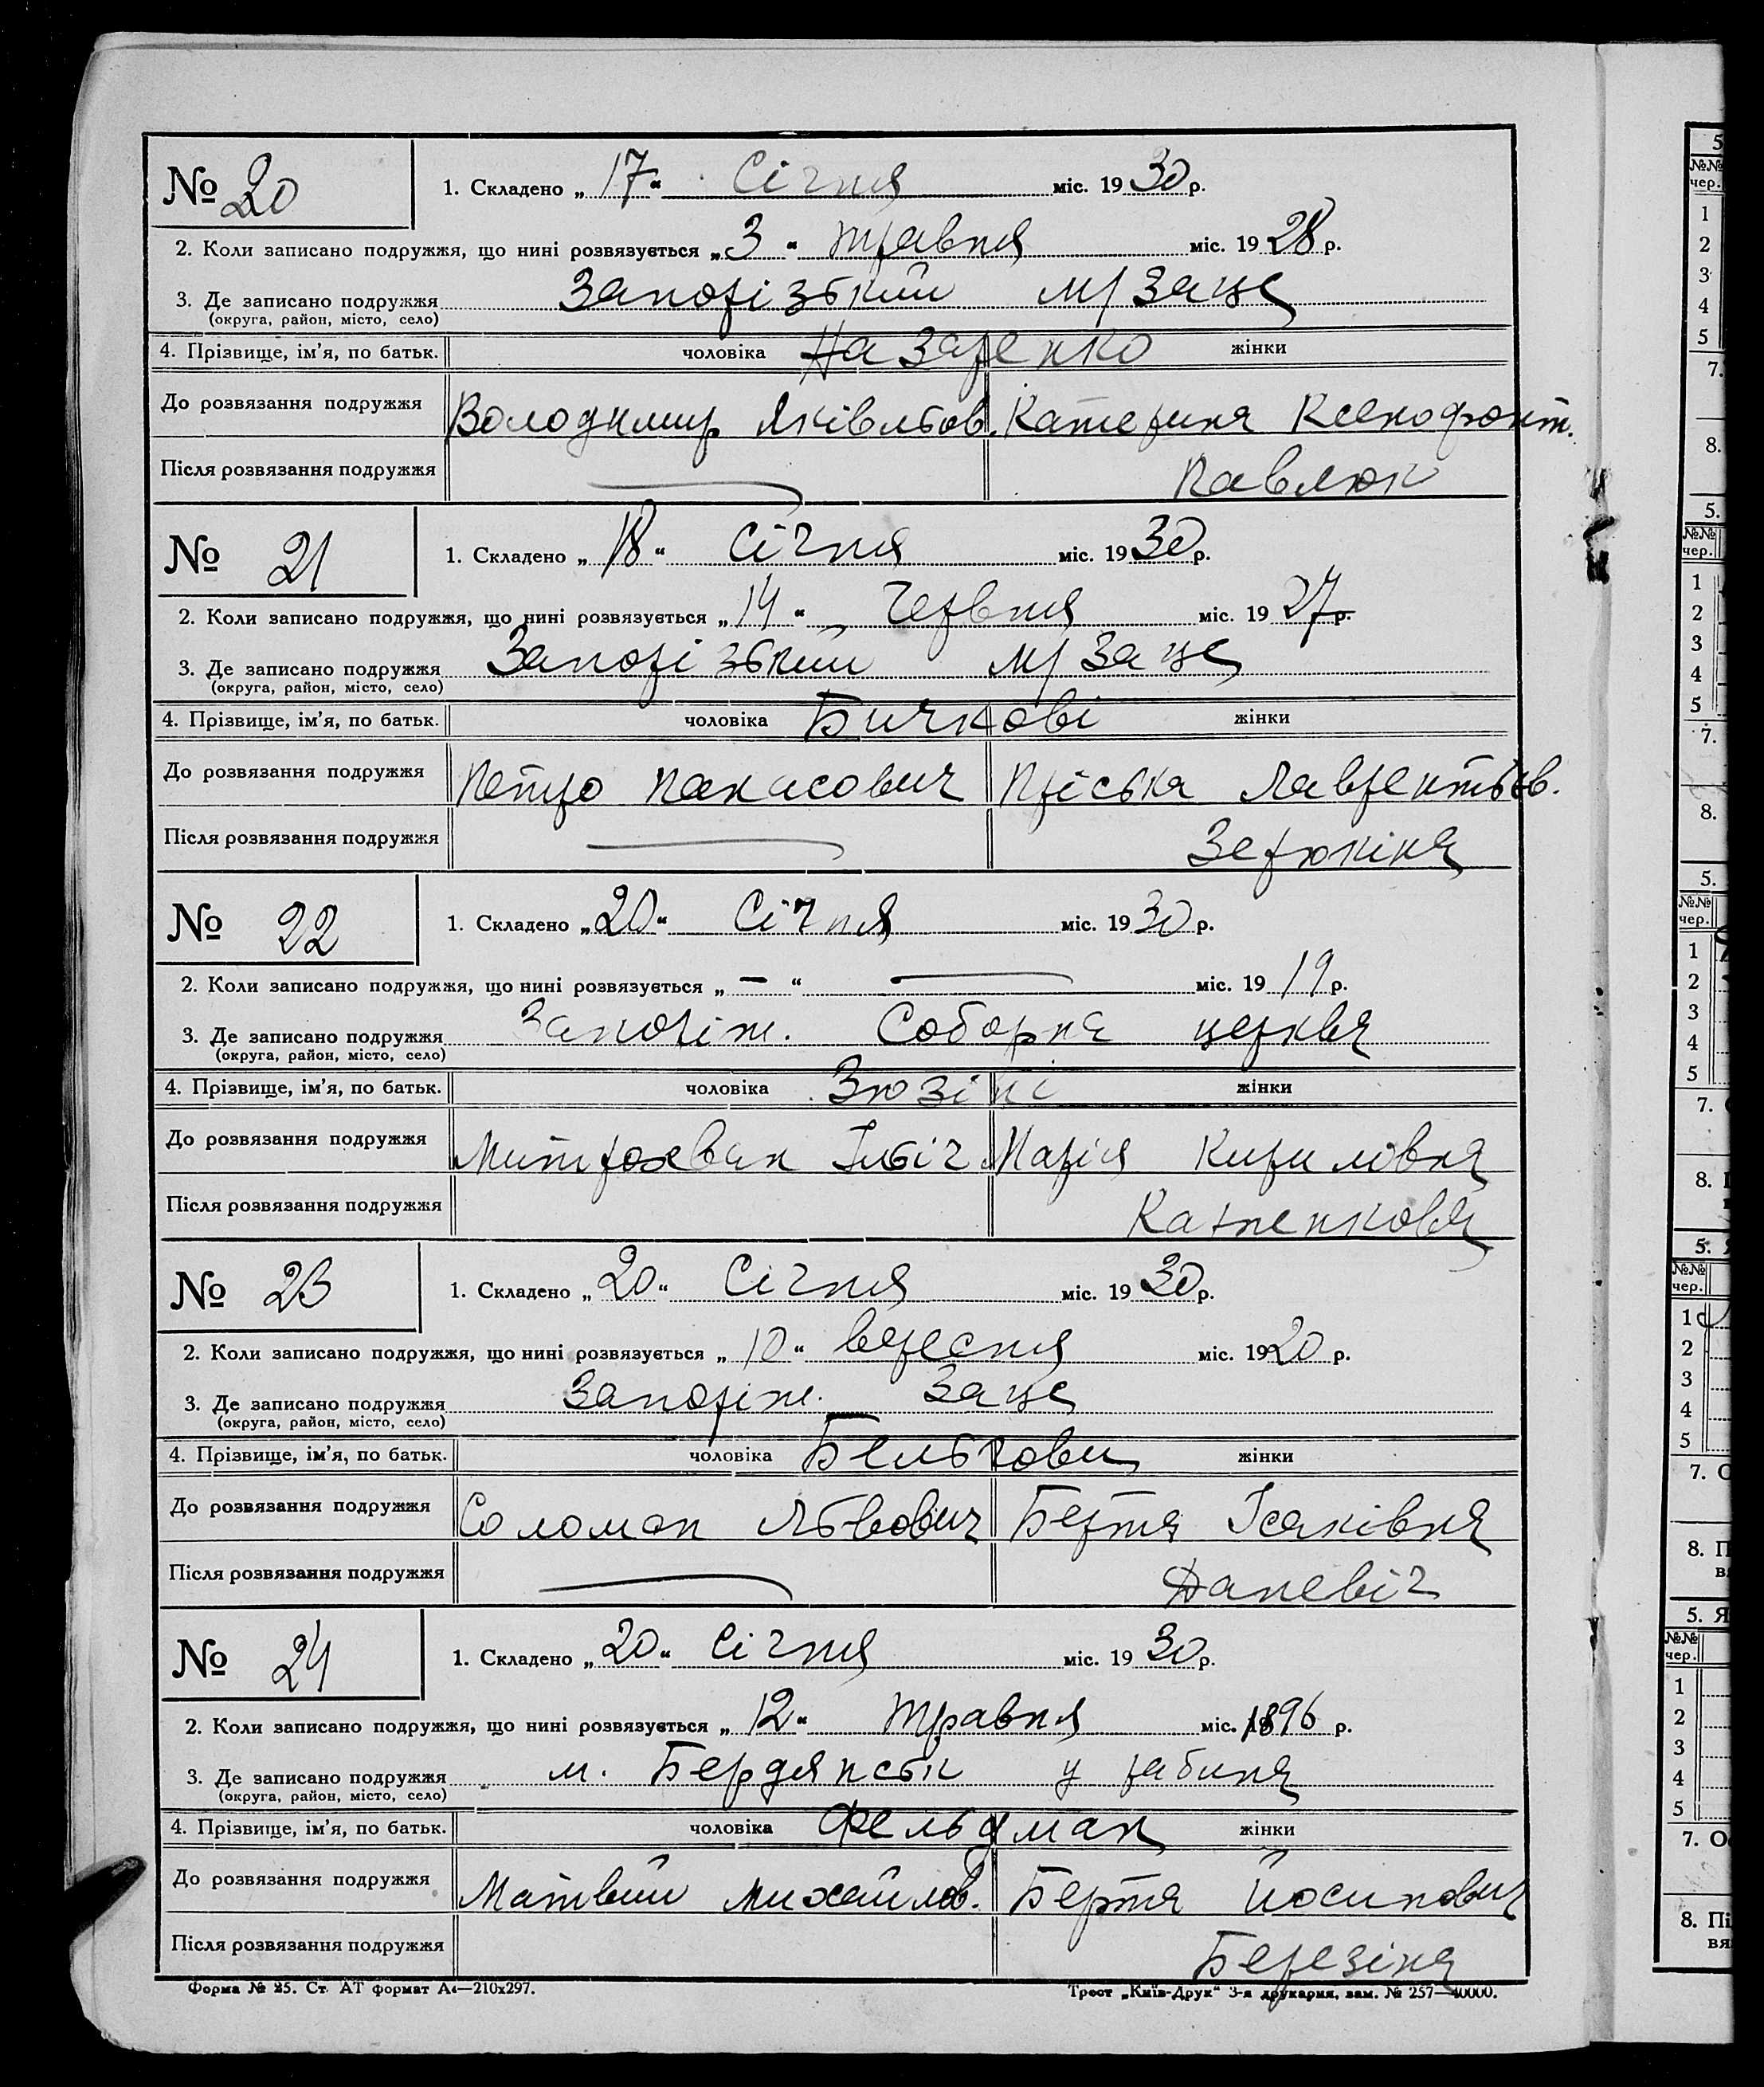 № 20
1. Складено „17“ Січня міс. 1930 р.
2. Коли записано подружжя, що нині розвязується „3“ травня міс. 1928 р.
3. Де записано подружжя Запорізький М/Загс
(округа, район, місто, село)
4. Прізвище, ім’я, по батьк. чоловіка Назаренко жінки
До розвязання подружжя Володимир Яківльов. Катерина Ксенофонт.
Після розвязання подружжя Павлюк
№ 21
1. Складено „18“ Січня міс. 1930 р.
2. Коли записано подружжя, що нині розвязується „14“ Червня міс. 1927 р.
3. Де записано подружжя Запорізький М/Загс
(округа, район, місто, село)
4. Прізвище, ім’я, по батьк. чоловіка Бичкові жінки
До розвязання подружжя Петро Панасович Пріська Лаврентьєв.
Після розвязання подружжя Зерюкіна
№ 22
1. Складено „20“ Січня міс. 1930 р.
2. Коли записано подружжя, що нині розвязується „—“ — міс. 19 19 р.
3. Де записано подружжя Запоріж. Соборна церква
(округа, район, місто, село)
4. Прізвище, ім’я, по батьк. чоловіка Зюзіні жінки
До розвязання подружжя Ільіч Марія Кириловна
Після розвязання подружжя
№ 23
1. Складено „20“ Січня міс. 1930 р.
2. Коли записано подружжя, що нині розвязується „10“ вересня міс. 1920 р.
3. Де записано подружжя Запоріж. Загс
(округа, район, місто, село)
4. Прізвище, ім’я, по батьк. чоловіка жінки
До розвязання подружжя Соломон Львович Берта Ісаківна
Після розвязання подружжя Даневіч
№ 24
1. Складено „20“ Січня міс. 1930 р.
2. Коли записано подружжя, що нині розвязується „12“ травня міс. 1896 р.
3. Де записано подружжя м. Бердянськ у рабина
(округа, район, місто, село)
4. Прізвище, ім’я, по батьк. чоловіка Фельдман жінки
До розвязання подружжя Матвій Михайлов. Берта Йосипович
Після розвязання подружжя Березіна
Форма № 25. Ст. АТ формат А4—210х297. Трест „Київ-Друк“ 3-я друкарня, зам. № 257—40000.